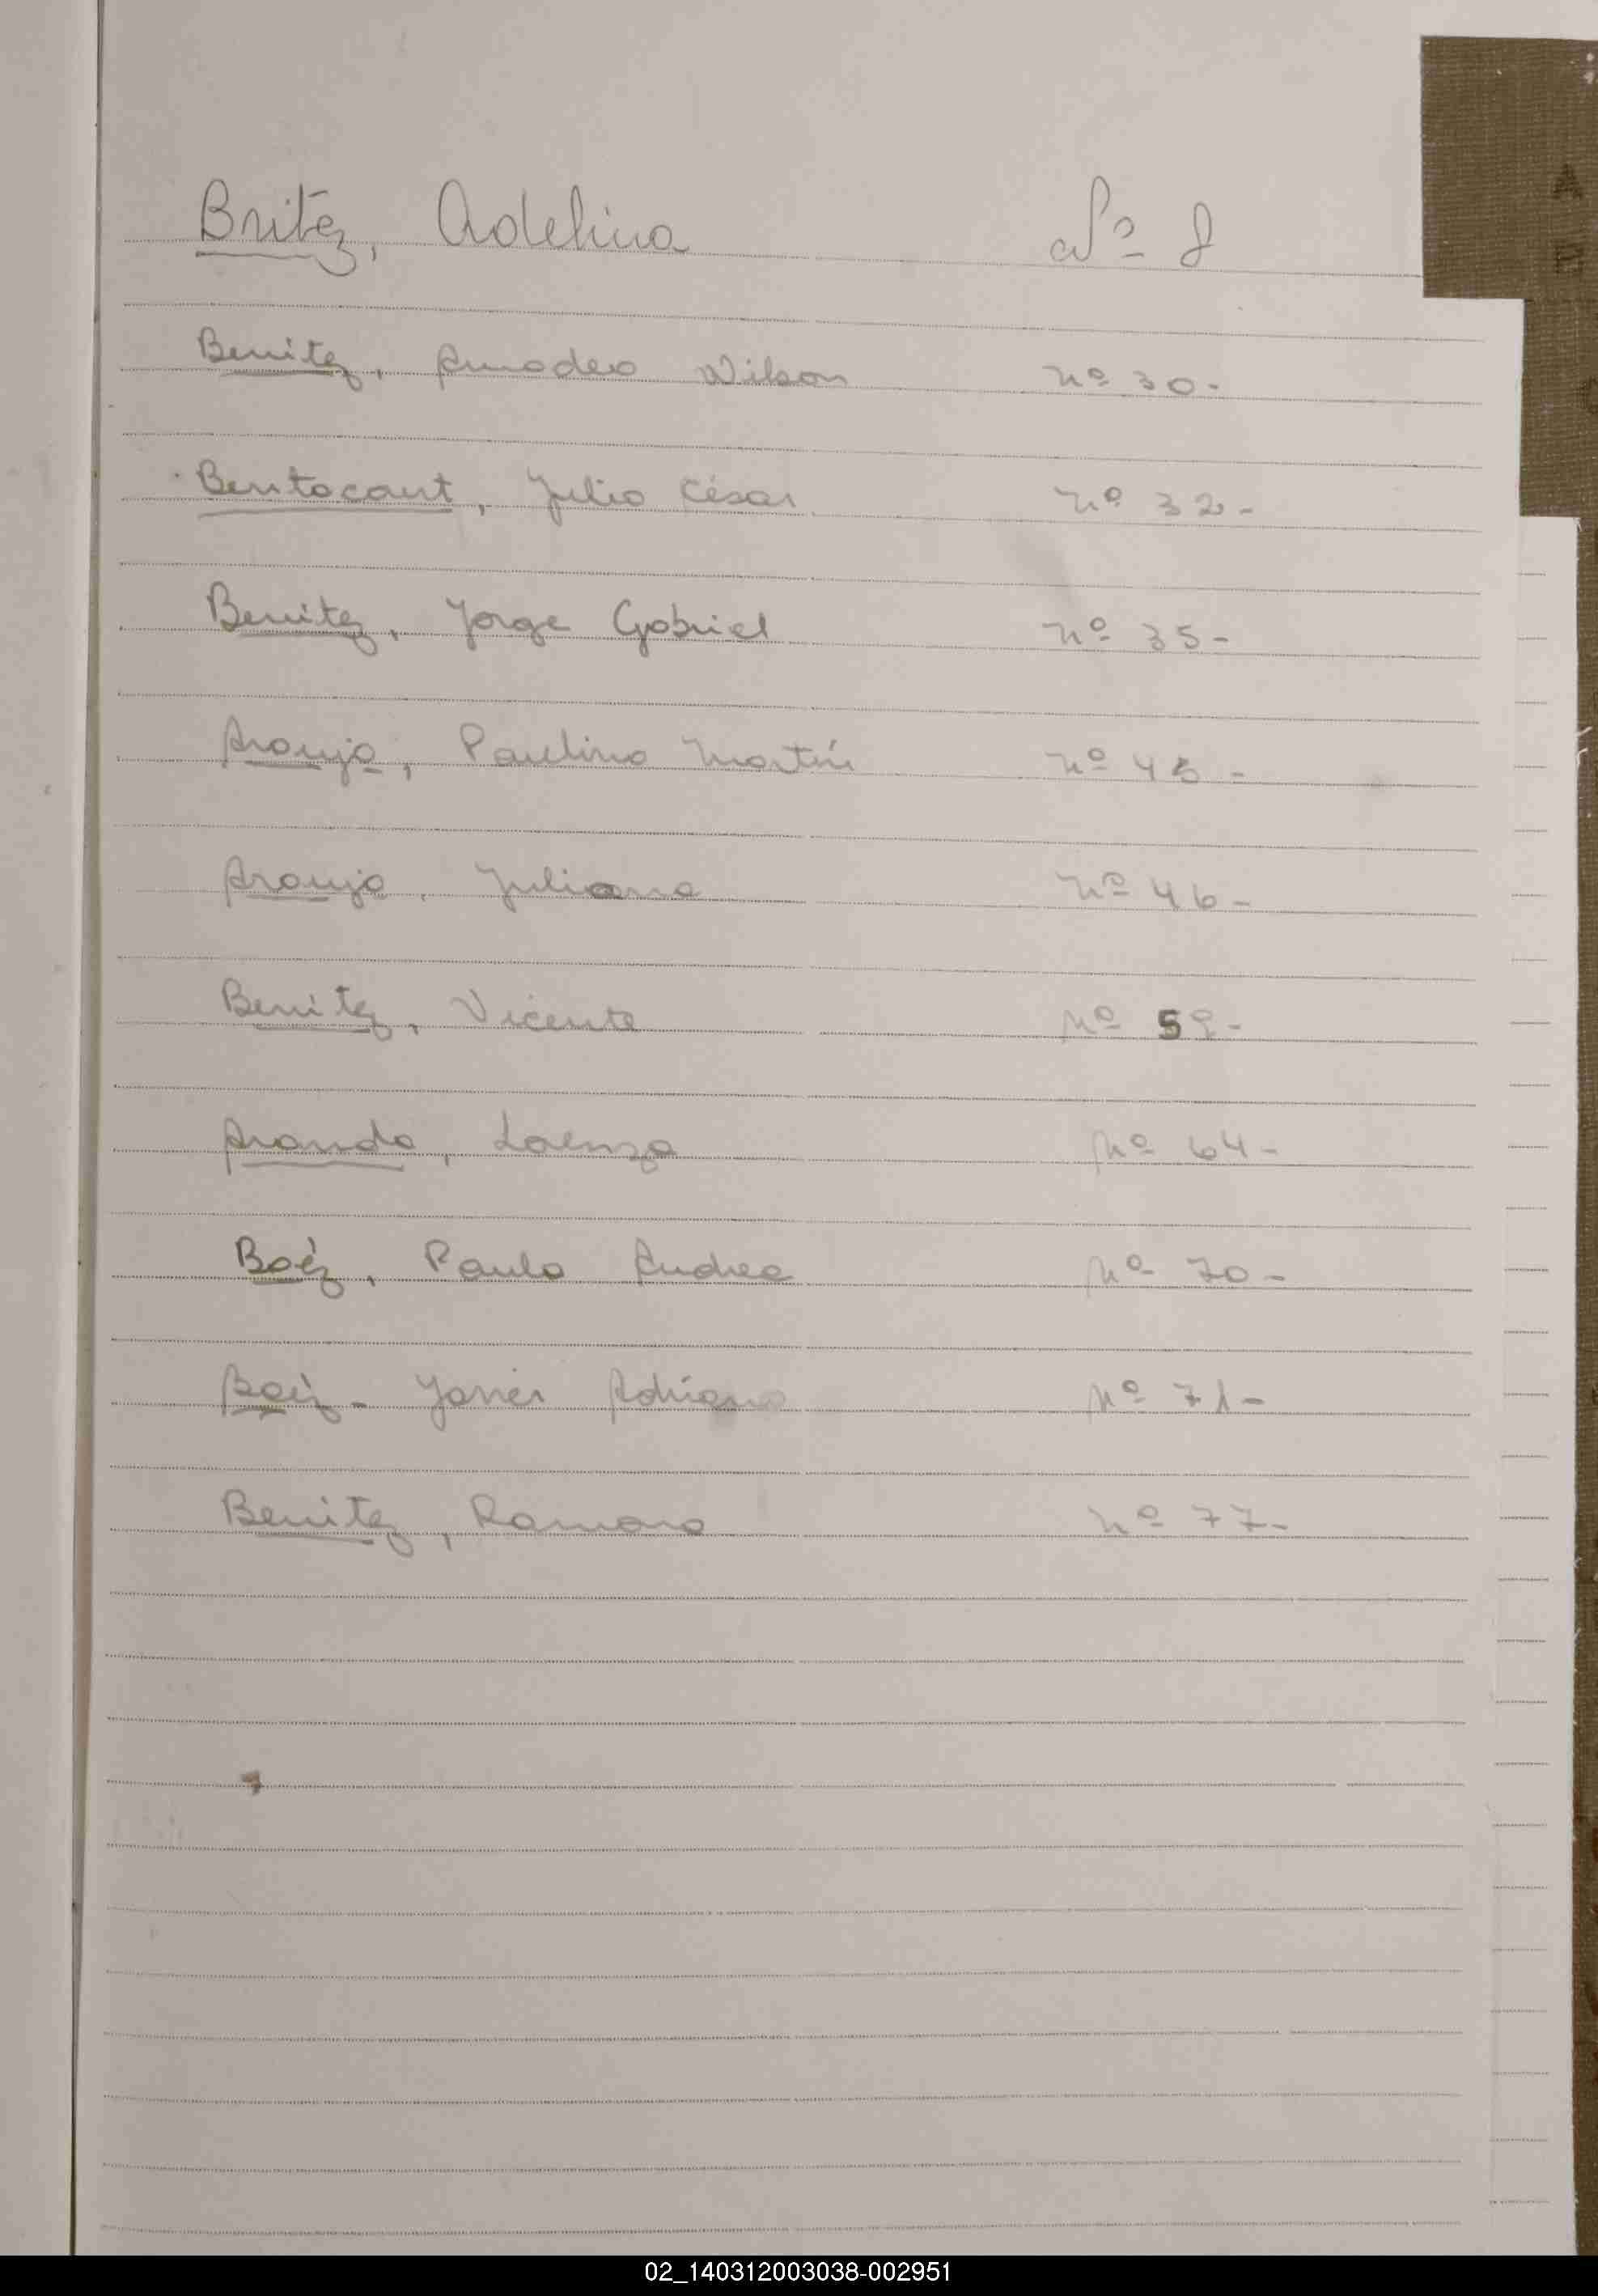 Britez, Adelina Nº 8
Benitez, Amadeo Wilson nº 30-
Bentocaut, Julio César nº 32-
Benitez, Jorge Gabriel nº 35-
Araujo, Paulino Martín nº 45-
Araujo, Juliana nº 46-
Benitez, Vicente Nº 59-
Aranda, Lorenza Nº 64-
Baéz, Paula Andrea Nº 70-
Baéz- Javier Nº 71-
Benitez, Ramona nº 77-
A
B
02_140312003038-002951